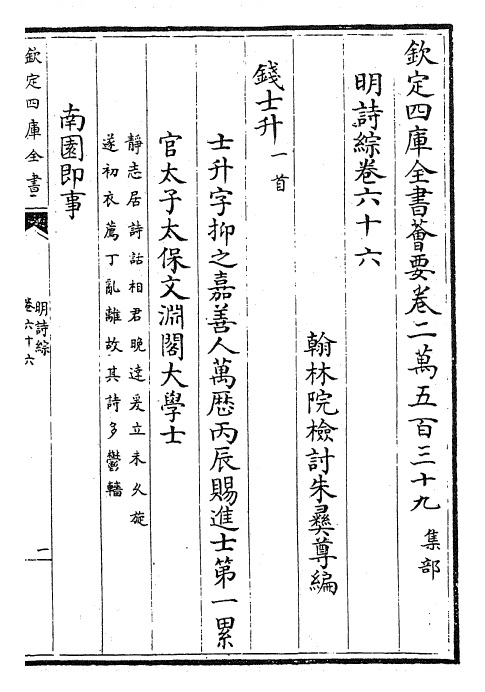 欽定四庫全書薈要卷二萬五百三十九 集部
明詩綜卷六十六
翰林院檢討朱彝尊編
錢士升 一首
士升字抑之嘉善人萬厯丙辰賜進士第一累
官太子太保文淵閣大學士
靜志居詩話相君晚達爰立未久旋
遂初衣薦丁亂離故其詩多鬱轖
南園即事
欽定四庫全書
明詩綜
卷六十六
一